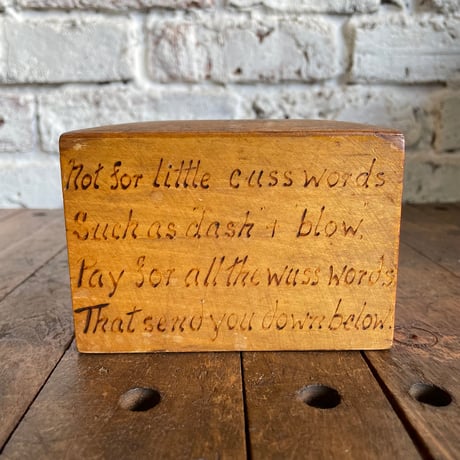 Not for little cuss words
Such as 'dash' & 'blow'.
Pay for all the wuss words
That send you down below.